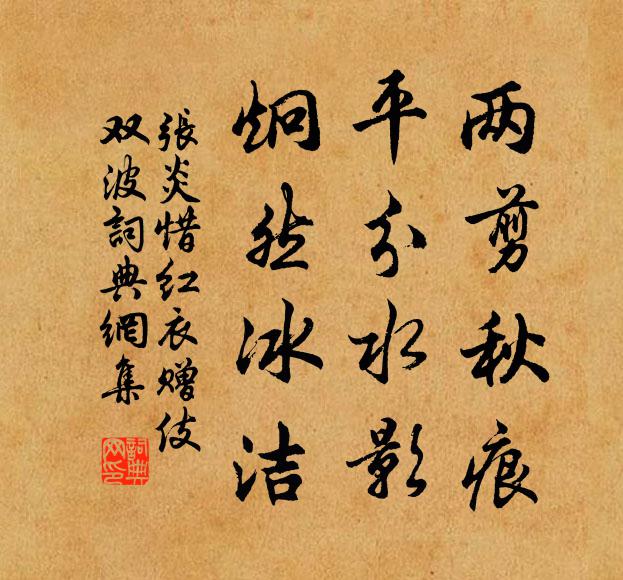 两剪秋痕
平分水影
炯然冰洁
張炎惜红衣赠伎
双波詞典網集
詞典
网印